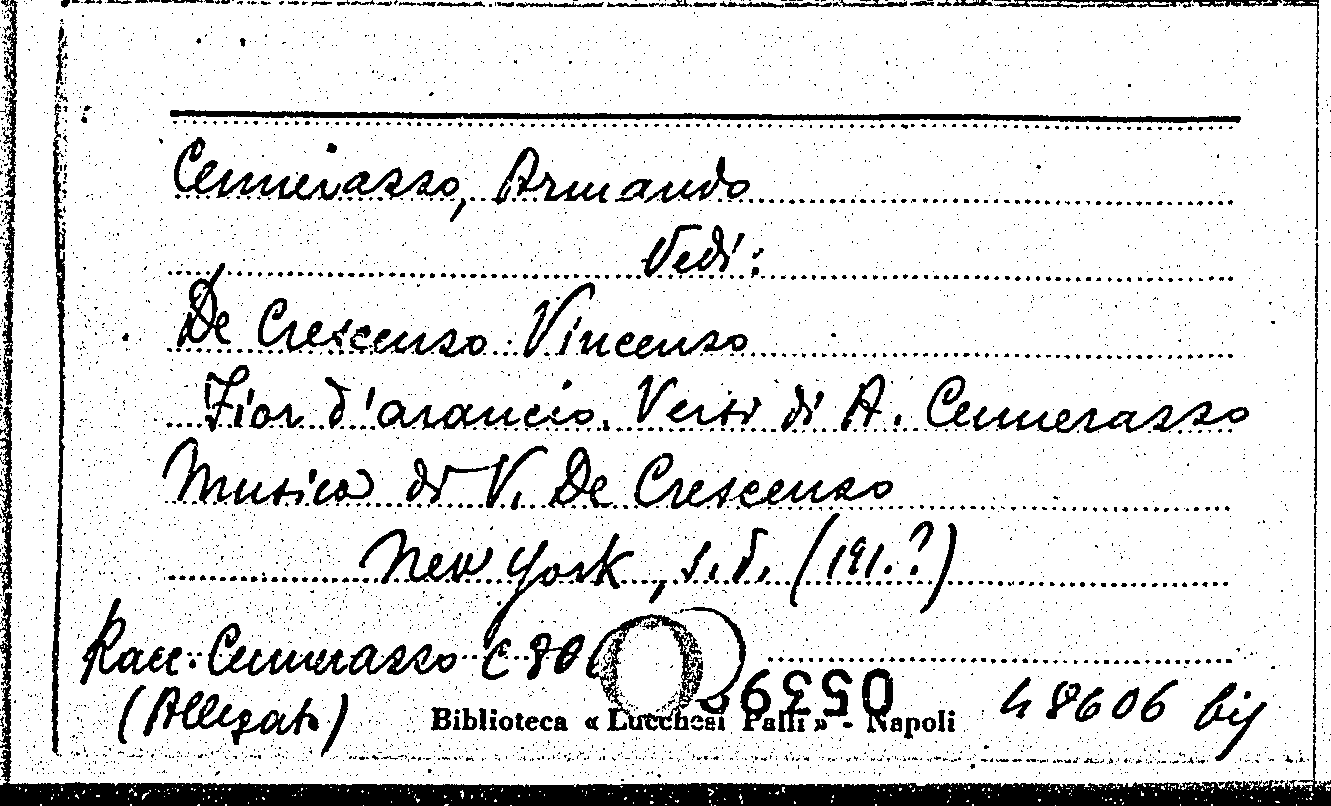 Cennerazzo, Armando
Vedi:
De Crescenzo Vincenzo
Fior d'arancio. Versi di A. Cennerazzo
Musica di V. De Crescenzo
New York, s.d. (191.?)
Racc. Cennerazzo C
(Allegato)
Biblioteca « Lucchesi Palli » - Napoli
48606 bis